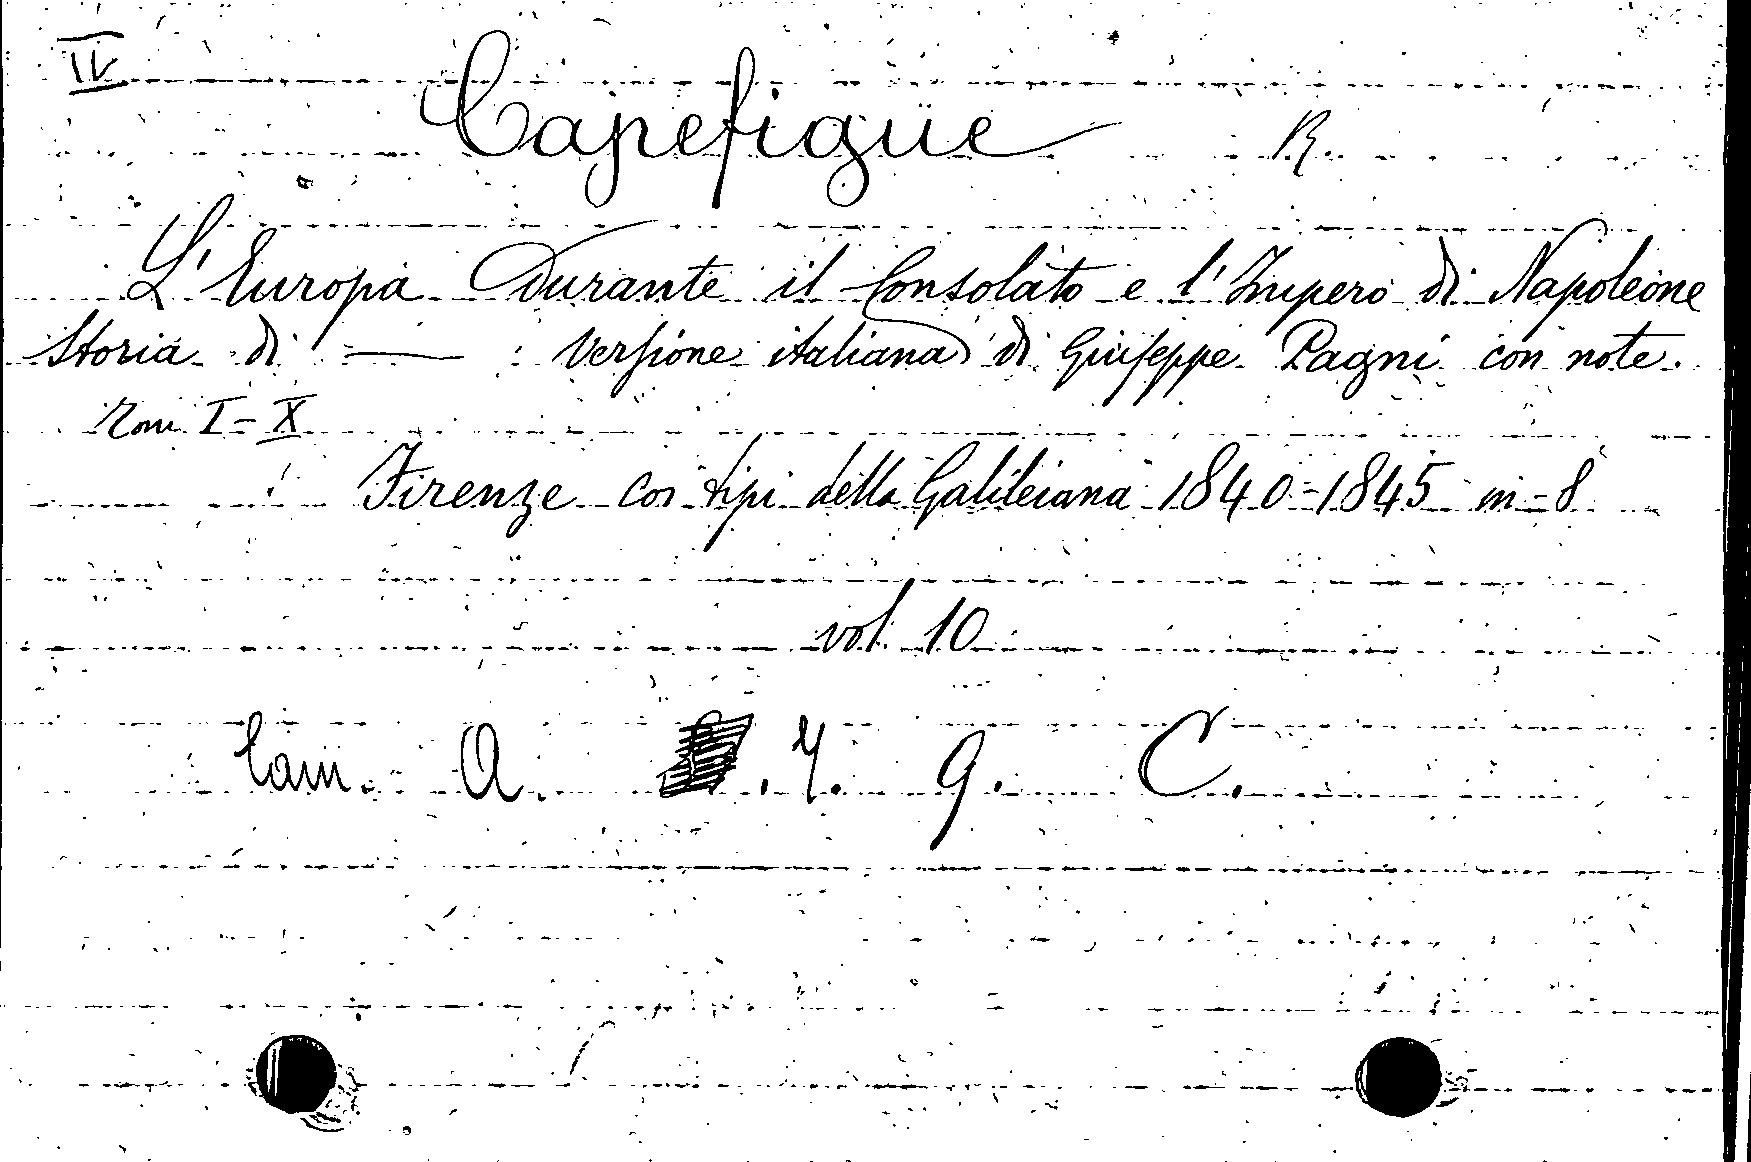 IV
Capefigüe R.
L'Europa Durante il Consolato e l'Impero di Napoleone
Storia di — : Versione italiana di Giuseppe Pagni con note.
Tom. I - X
Firenze coi tipi della Galileiana 1840-1845 in-8
vol. 10
Cam. A. .4. 9. C.